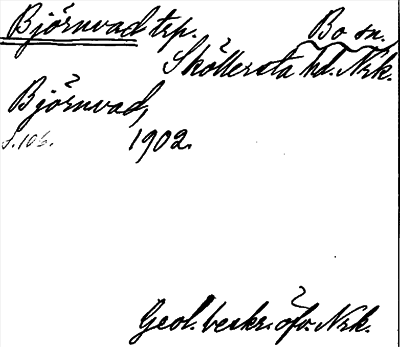 Björnvad trp. Bo sn.
Sköllersta hd. Nrk.
Björnvad,
S. 106. 1902.
Geol. beskr. öfv. Nrk.